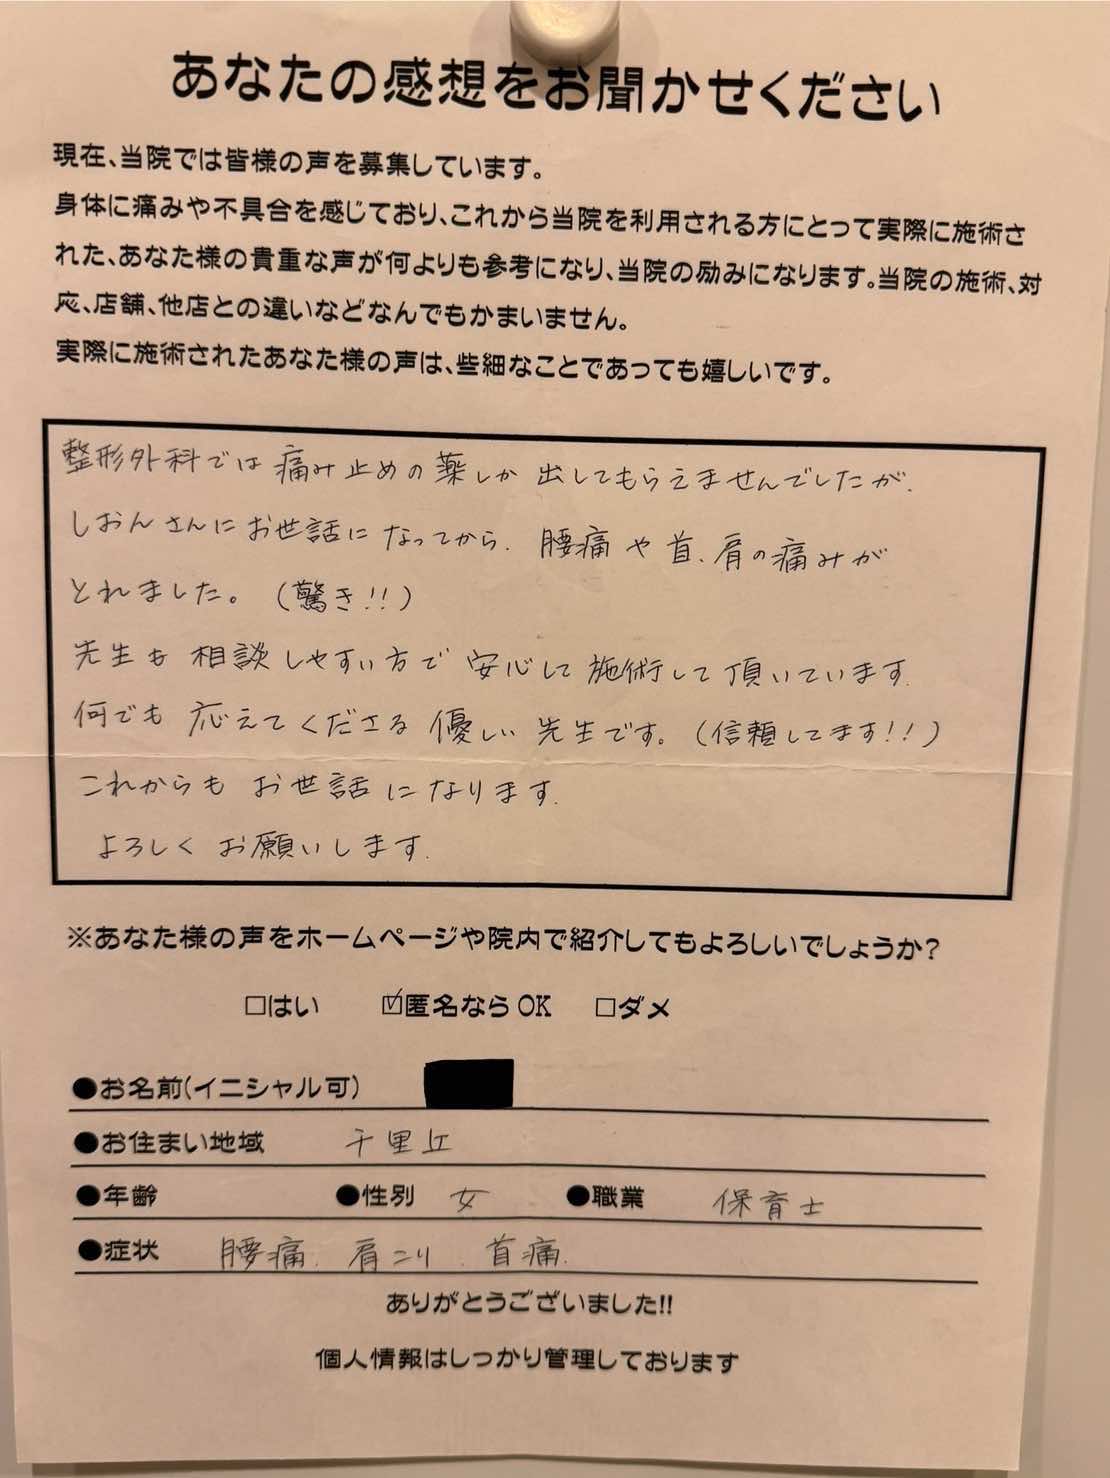 あなたの感想をお聞かせください
現在、当院では皆様の声を募集しています。
身体に痛みや不具合を感じており、これから当院を利用される方にとって実際に施術さ
れた、あなた様の貴重な声が何よりも参考になり、当院の励みになります。当院の施術、対
応、店舗、他店との違いなどなんでもかまいません。
実際に施術されたあなた様の声は、些細なことであっても嬉しいです。
整形外科では痛み止めの薬しか出してもらえませんでしたが、
しおんさんにお世話になってから、腰痛や首、肩の痛みが
とれました。(驚き!!)
先生も相談しやすい方で安心して施術して頂いています。
何でも応えてくださる優しい先生です。(信頼してます!!)
これからもお世話になります。
よろしくお願いします。
※あなた様の声をホームページや院内で紹介してもよろしいでしょうか?
□はい ☑匿名ならOK □ダメ
●お名前(イニシャル可)
●お住まい地域 千里丘
●年齢 ●性別 女 ●職業 保育士
●症状 腰痛、肩こり、首痛、
ありがとうございました!!
個人情報はしっかり管理しております